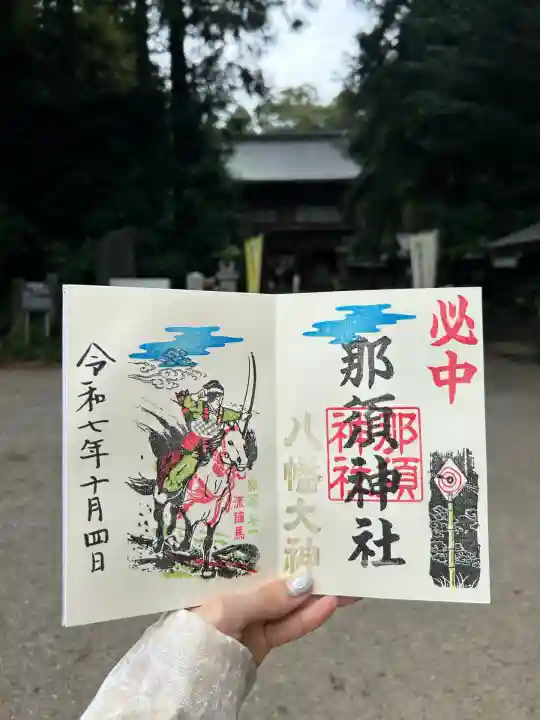 必中
那須神社
那須神社
八幡大神
流鏑馬
令和七年十月四日